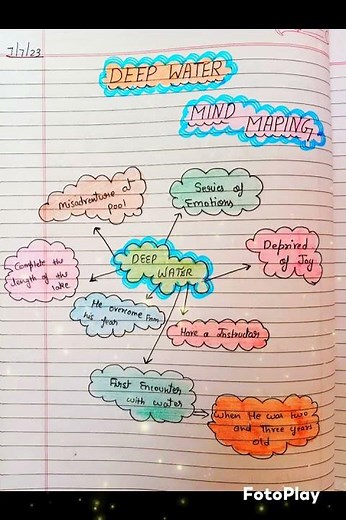 7/7/23
DEEP WATER
MIND MAPING
Misadventure at
pool
Series of
Emotions
Complete the
length of the
lake
DEEP
WATER
Deprived
of Joy
He overcome from
his fear
Have a Instructor
First Encounter
with water
When He was two
and Three years
old
FotoPlay